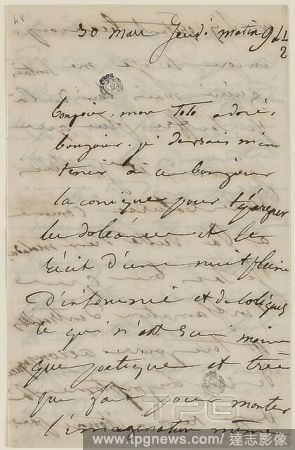 48
30 Mars Jeudi matin 9 h 1/2
bonjour, mon Toto adoré,
bonjour, je devrais m'en
tenir à ce bonjour
laconique pour t'épargner
les doléances et le
récit d'une nuit pleine
d'insomnie et de coliques
ce qui n'est rien moins
que poétique et très
que fait pour monter
l'imagination même
TPG
www.tpgnews.com / 達志影像